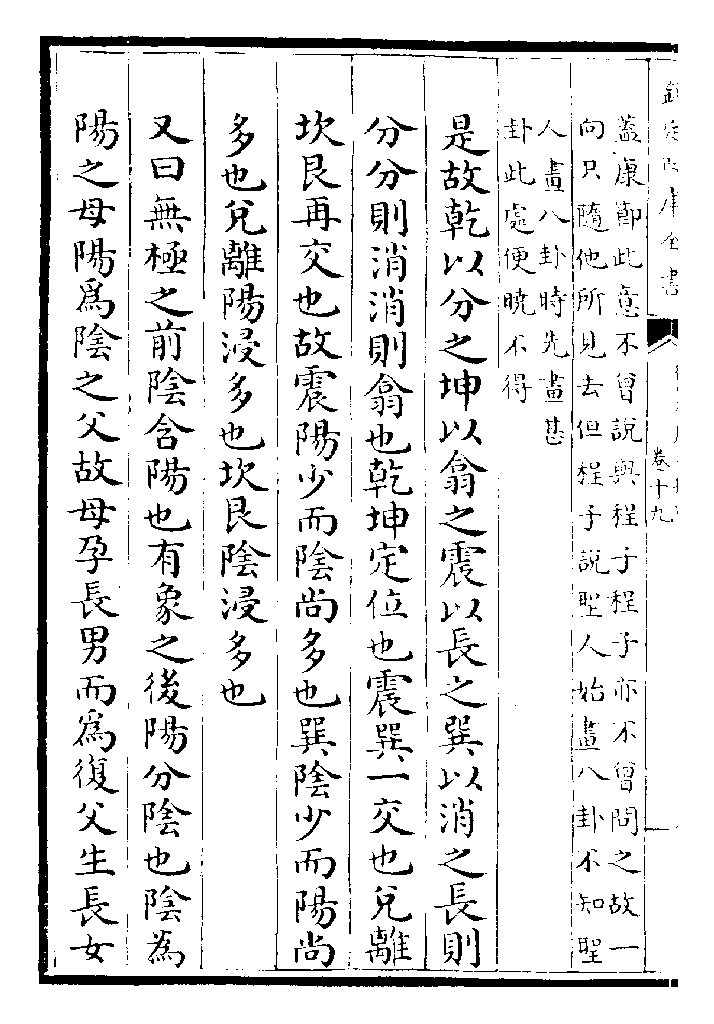 欽定四庫全書
卷十九
蓋康節此意不曾說與程子程子亦不曾問之故一
向只隨他所見去但程子說聖人始畫八卦不知聖
人畫八卦時先畫甚
卦此處便曉不得
是故乾以分之坤以翕之震以長之巽以消之長則
分分則消消則翕也乾坤定位也震巽一交也兌離
坎艮再交也故震陽少而陰尚多也巽陰少而陽尚
多也兌離陽浸多也坎艮陰浸多也
又曰無極之前陰含陽也有象之後陽分陰也陰為
陽之母陽爲陰之父故母孕長男而爲復父生長女